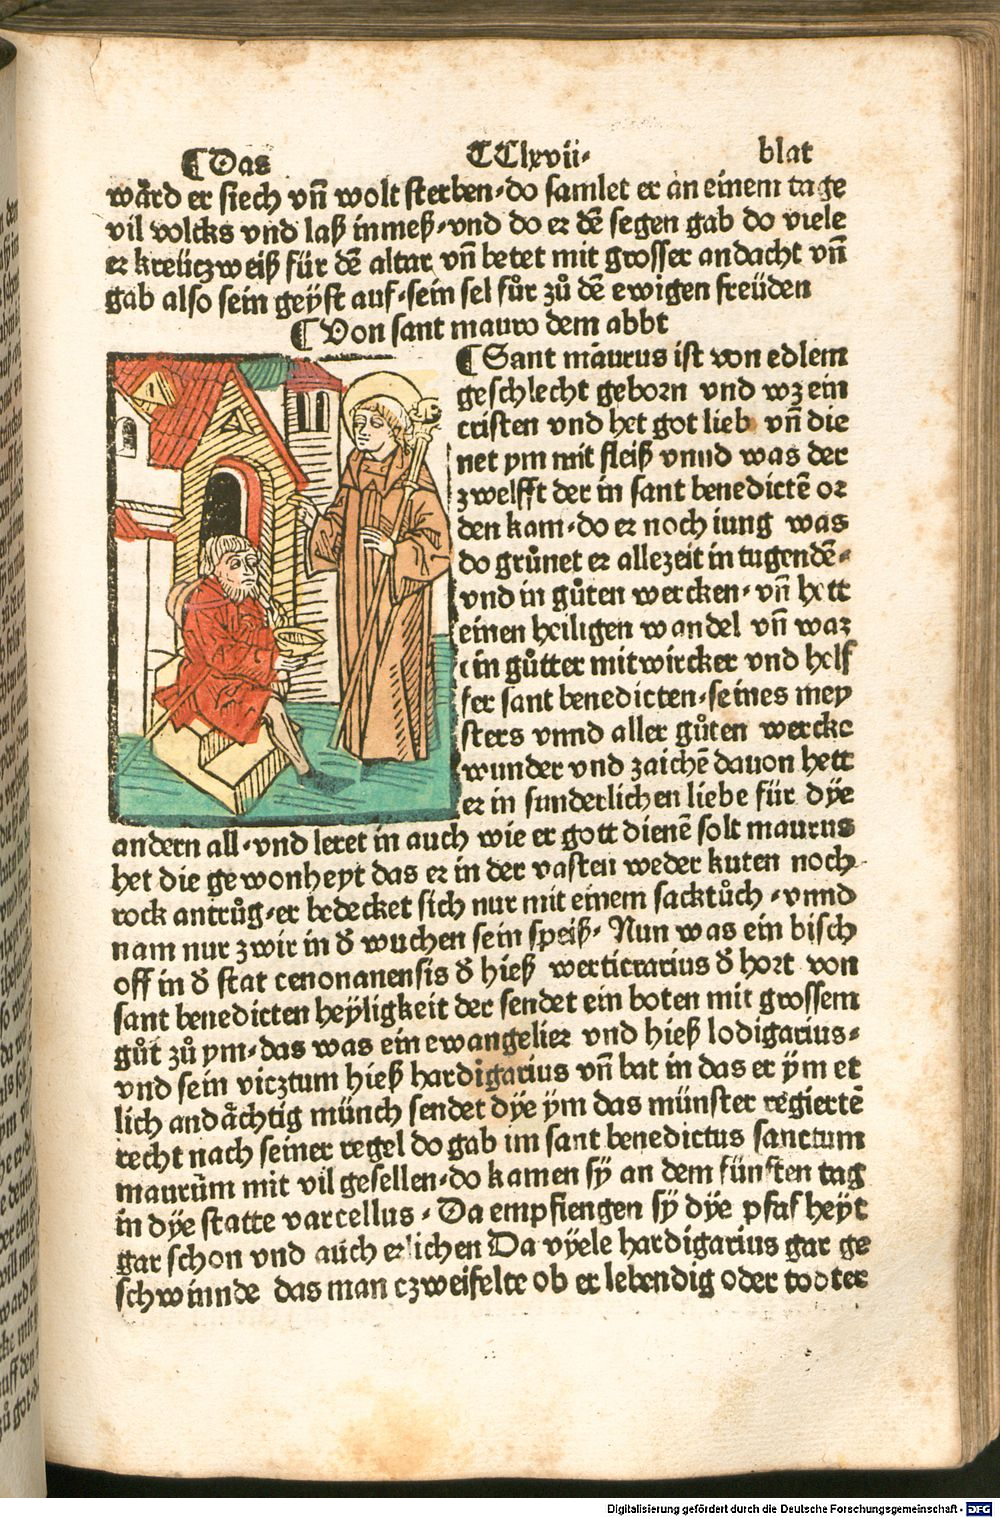 ¶Das CClxvii· blat
wård er siech vn̄ wolt sterben·do samlet er an einem tage
vil volcks vnd laß in meß·vnd do er dē segen gab do viele
er kreüczweiß für dē altar vn̄ betet mit grosser andacht vn̄
gab also sein geÿst auf·sein sel fůr zů dē ewigen freüden
¶Von sant mauro dem abbt
¶Sant maurus ist von edlem
geschlecht geborn vnd wz ein
cristen vnd het got lieb vn̄ die
net ym mit fleiß vnnd was der
zwelfft der in sant benedictē or
den kam·do er noch iung was
do grůnet er allezeit in tugendē·
vnd in gůten wercken·vn̄ hett
einen heiligen wandel vn̄ waz
ein gůtter mitwircker vnd helf
fer sant benedicten·seines mey
sters vnnd aller gůten wercke
wunder vnd zaichē dauon hett
er in sunderlichen liebe für dÿe
andern all·vnd leret in auch wie er gott dienē solt maurus
het die gewonheyt das er in der vasten weder kuten noch
rock antrůg·er bedecket sich nur mit einem sacktůch·vnnd
nam nur zwir in đ wuchen sein speiß· Nun was ein bisch
off in đ stat cenonanensis đ hieß werticrarius đ hort von
sant benedicten heÿligkeit der sendet ein boten mit grossem
gůt zů ym·das was ein ewangelier vnd hieß lodigarius·
vnd sein vicztum hieß hardigarius vn̄ bat in das er ÿm et
lich andåchtig münch sendet dÿe ÿm das münster regiertē
recht nach seiner regel do gab im sant benedictus sanctum
maurūm mit vil gesellen·do kamen sÿ an dem fünften tag
in dÿe statte varcellus· Da empfiengen sÿ dÿe pfafheÿt
gar schon vnd auch erlichen Da vÿele hardigarius gar ge
schwinnde das man czweifelte ob er lebendig oder todter
Digitalisierung gefördert durch die Deutsche Forschungsgemeinschaft - DFG